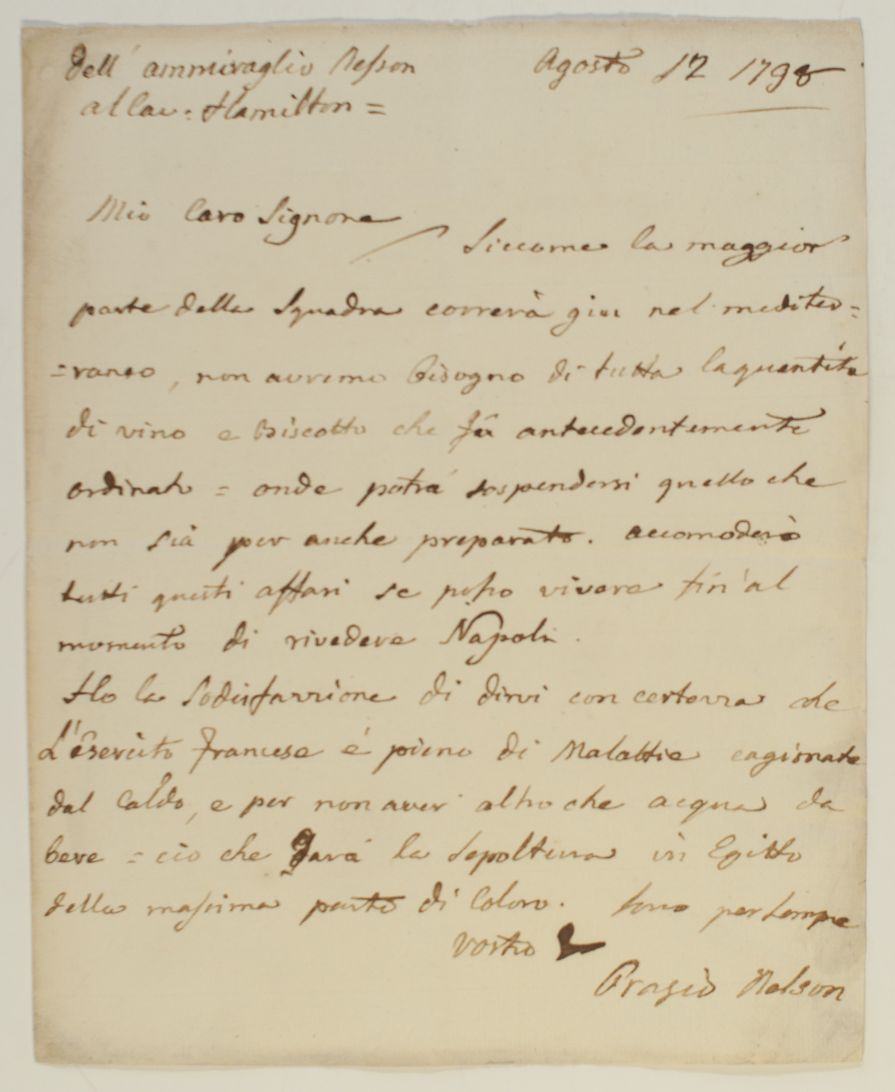 dell' ammiraglio Nelson Agosto 12 1798
al Cav: Hamilton =
Mio Caro Signore
Siccome la maggior
parte della Squadra correrà giu nel mediter=
=raneo, non avremo bisogno di tutta la quantità
di vino e Biscotto che fu antecedentemente
ordinato = onde potrà sospendersi quello che
non sià per anche preparato. accomoderò
tutti questi affari se posso vivere fin'al
momento di rivedere Napoli.
Ho la Sodisfazzione di dirvi con certezza che
L'esercito francese é pieno di Malattie cagionate
dal Caldo, e per non aver altro che acqua da
bere = ciò che Sarà la Sepoltura in Egitto
della massima parte di Coloro. Sono per Sempre
Vostro
Orazio Nelson